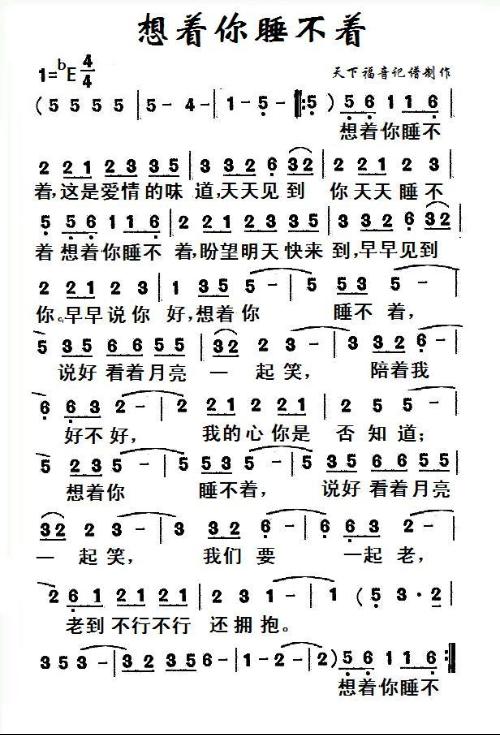 想着你睡不着
1=ᵇE 4/4
天下福音记谱制作
( 5 5 5 5 | 5 - 4 - | 1 - 5 - ‖: 5 ) 5 6 1 1 6 |
想着你睡不
2 2 1 2 3 3 5 | 3 3 2 6 (32) | 1 2 1 2 2 3 |
着,这是爱情的味 道,天天见到 你天天 睡不
5 5 6 1 1 6 | 2 2 1 2 3 3 5 | 3 3 2 6 32 |
着 想着你睡不 着,盼望明天 快来 到,早早见到
2 2 1 2 3 | 1 3 5 5 - | 5 5 3 5 - |
你。早早说你 好,想着你 睡不着,
5 3 5 6 6 5 5 | 32 2 3 - | 3 3 2 6 - |
说好 看着月亮 一起笑, 陪着我
6 6 3 2 - | 2 2 1 2 2 1 | 2 5 5 |
好不好, 我的心你是 否知道;
5 2 3 5 - | 5 5 3 5 - | 5 3 5 6 6 5 5 |
想着你 睡不着, 说好 看着月亮
32 2 3 - | 3 3 2 6 - | 6 6 5 - |
一起笑, 我们要 一起老,
2 6 1 2 1 2 1 | 2 2 1 1 - | 1 ( 5 3 · 2 |
老到 不行不行 还拥抱。
3 5 3 - | 3 2 3 5 6 - | 1 - 2 - | 2 ) 5 6 1 1 6 :‖
想着你睡不